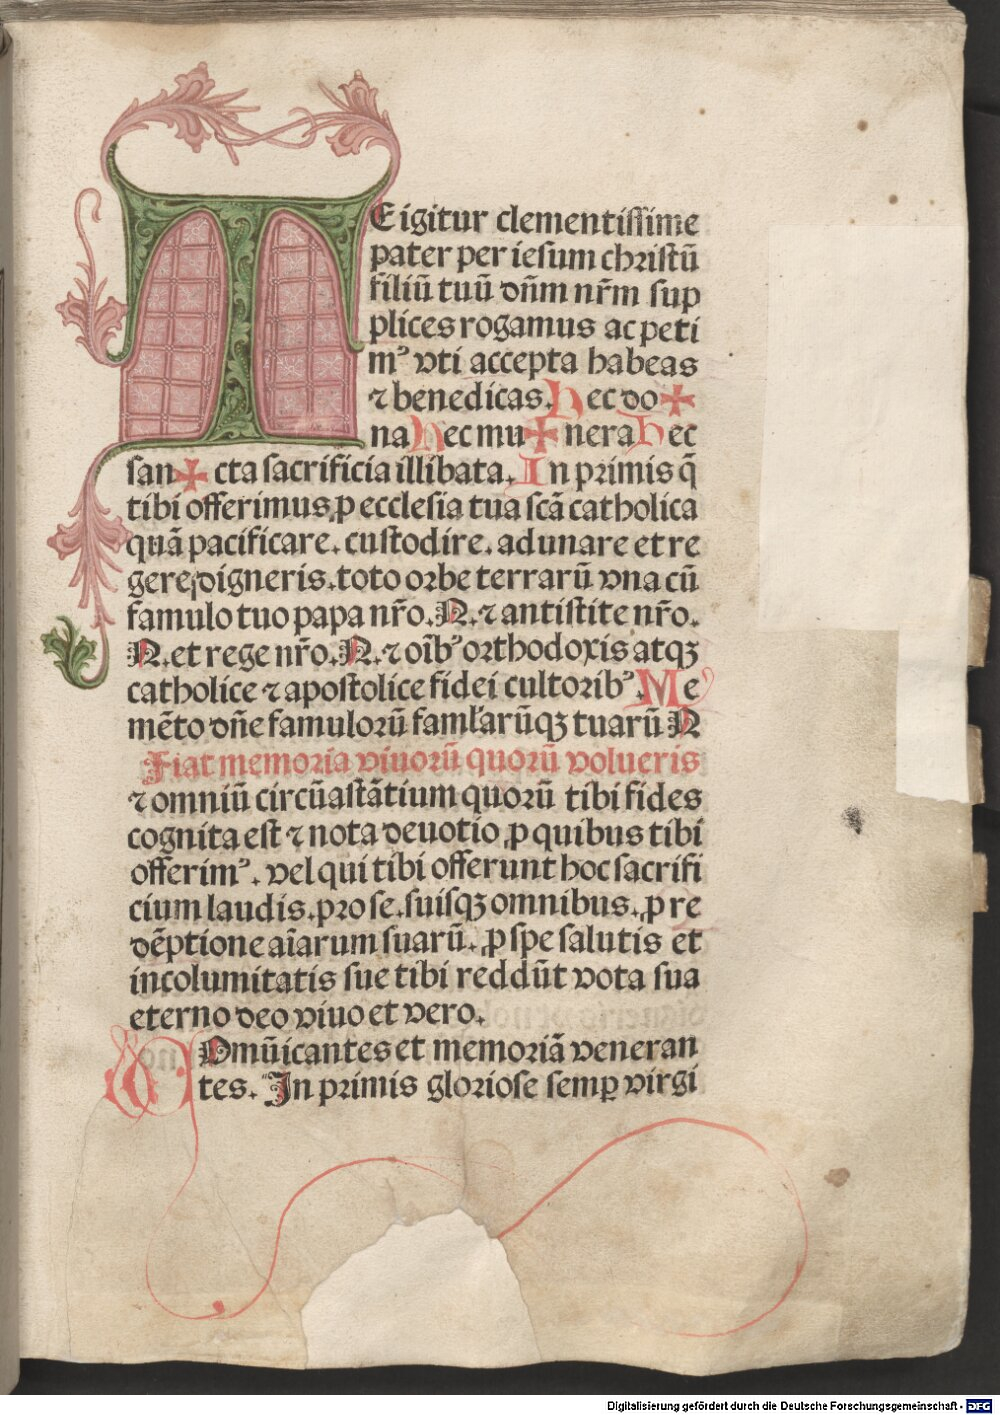 TE igitur clementissime
pater per iesum christū
filiū tuū dn̄m nr̄m sup
plices rogamus ac peti
mꝰ vti accepta habeas
⁊ benedicas. Hec do✠
na Hec mu✠nera Hec
san✠cta sacrificia illibata. In primis q̄
tibi offerimus ꝓ ecclesia tua scā catholica
quā pacificare. custodire. adunare et re
gere digneris. toto orbe terrarū vna cū
famulo tuo papa nr̄o. N. ⁊ antistite nr̄o.
N. et rege nr̄o. N. ⁊ oīb⁹ orthodoxis atqꝫ
catholice ⁊ apostolice fidei cultorib⁹. Me
mēto dn̄e famulorū famlarūqꝫ tuarū N
Fiat memoria viuorū quorū volueris
⁊ omniū circūastātium quorū tibi fides
cognita est ⁊ nota deuotio, ꝓ quibus tibi
offerimꝰ. vel qui tibi offerunt hoc sacrifi
cium laudis. pro se. suisqꝫ omnibus. ꝓ re
dēptione aīarum suarū. ꝓ spe salutis et
incolumitatis sue tibi reddūt vota sua
eterno deo viuo et vero.
COmūicantes et memoriā veneran
tes. In primis gloriose semꝑ virgi
Digitalisierung gefördert durch die Deutsche Forschungsgemeinschaft - DFG